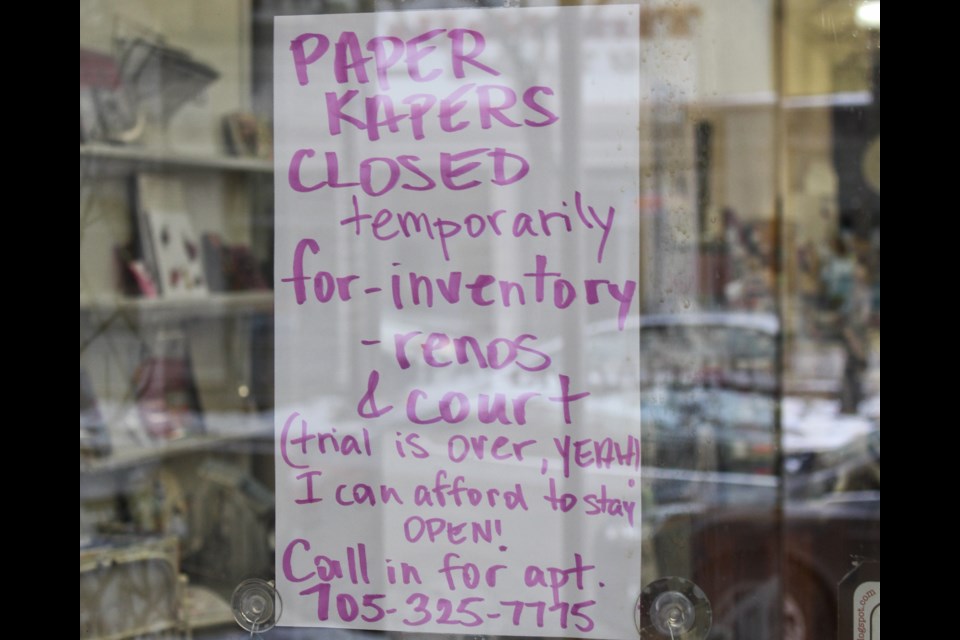 PAPER
KAPERS
CLOSED
temporarily
for-inventory
-renos
& court
(trial is over, YEAH!)
I can afford to stay
OPEN!
Call in for apt.
705-325-7775
logspot.com